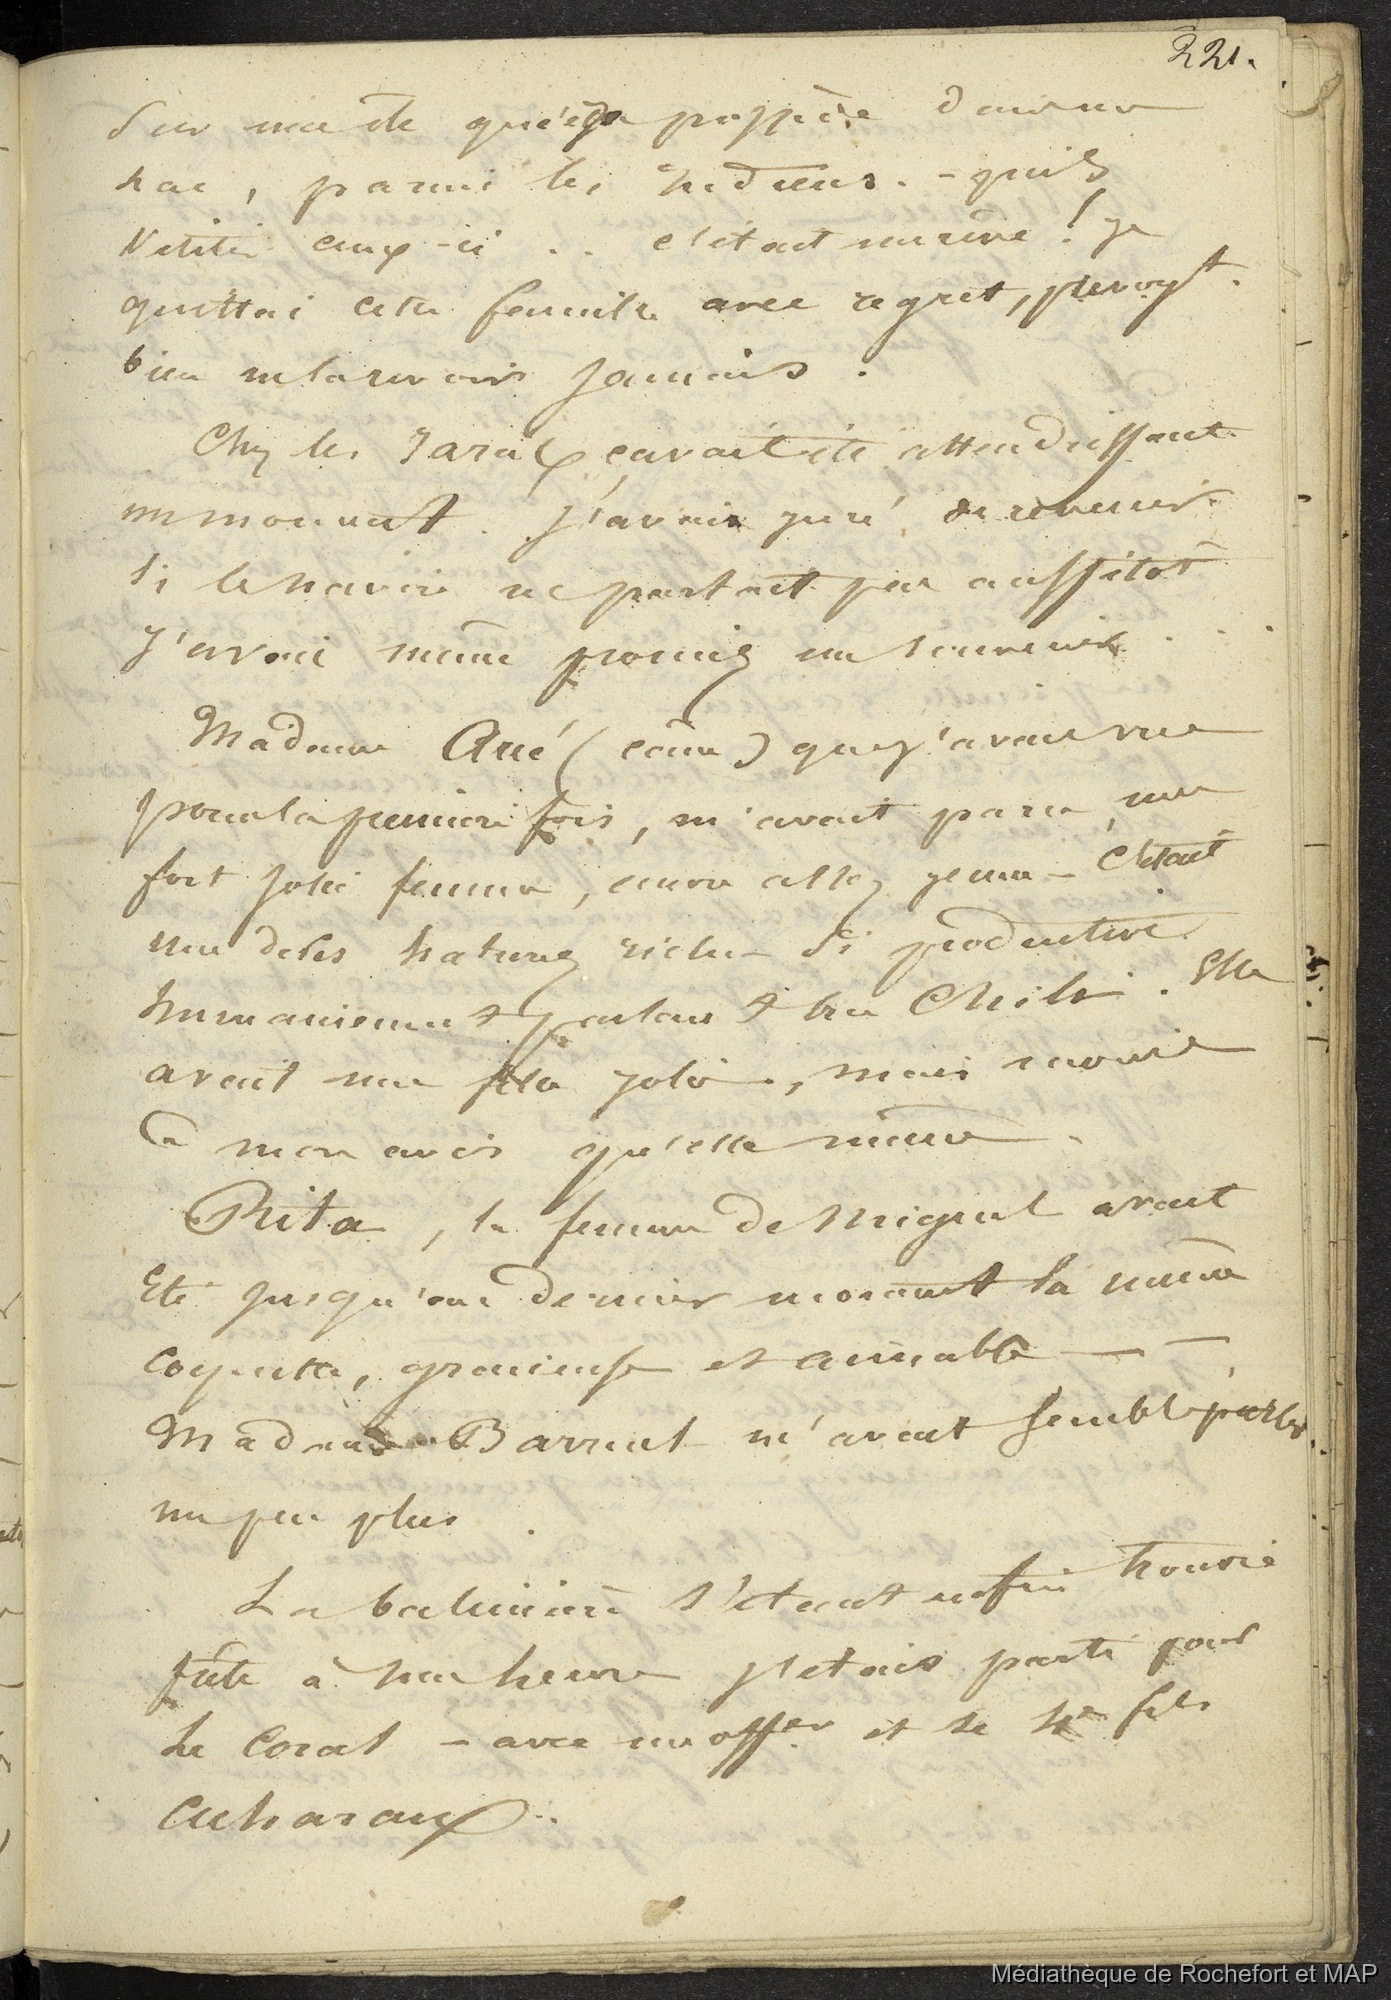 221.
Sur une île qu'ego possède d'aurore
nae, parmi les Indiens. - quils
Vetiti ceux-ci .. c'était un rêve! je
quittai cette famille avec regret, prévoyt.
bien ne la revoir jamais.
Chez les Jaral çavait été attendrissant
un moment. J'avais juré, de revenir
Si le navire ne partait pas aussitôt
J'avais même promis un souvenir. . .
Madame Arré ( ) que j'avais vue
pour la première fois, m'avait paru, une
fort jolie femme, encore assez jeune - C'était
une de ces natures riches Si productive
humainement parlant au Chili. Elle
avait une fille jolie, mais moins
à mon avis qu'elle même.
Rita, la femme de Miguel avait
Eté jusqu'au dernier moment la même
Coquette, gracieuse et aimable —
Madame Barruel m'avait semblé parler
un peu plus.
La baleinière s'étant enfin trouvée
prête à une heure j'étais parti pour
Le Coral - avec un offer et le fils
Cuharaux..
Médiathèque de Rochefort et MAP